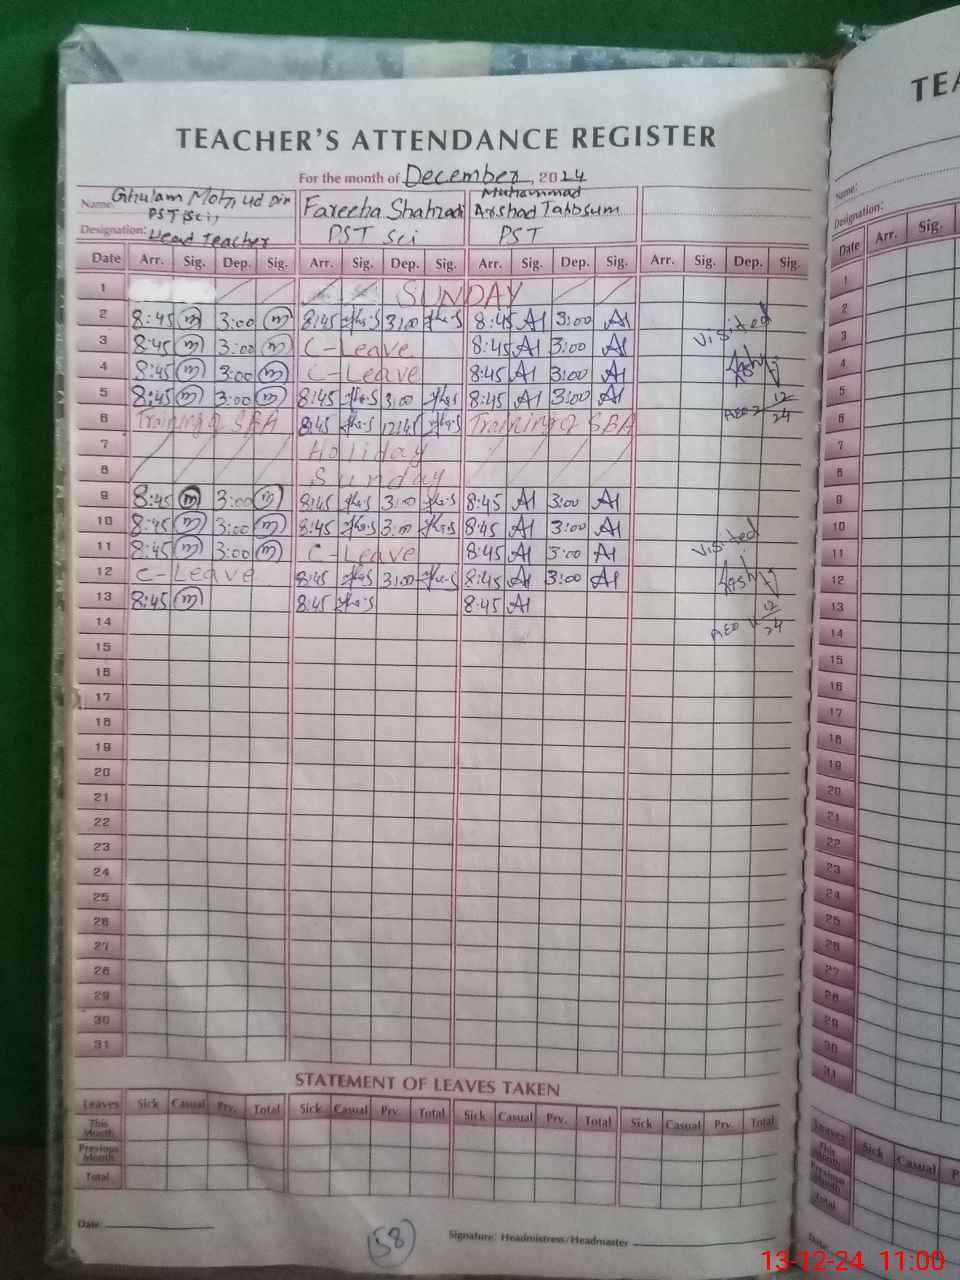 TEACHER'S ATTENDANCE REGISTER
For the month of December, 2024
Name: Ghulam Mohy ud Din Fareeha Shahzadi Muhammad Arshad Tabbsum
PST (Sci),
Designation: Head Teacher PST Sci PST
Date Arr. Sig. Dep. Sig. Arr. Sig. Dep. Sig. Arr. Sig. Dep. Sig. Arr. Sig. Dep. Sig.
1 SUNDAY
2 8:45 m 3:00 m 8:45 3:00 8:45 A1 3:00 A1 Visited
3 8:45 m 3:00 m C-Leave 8:45 A1 3:00 A1
4 8:45 m 3:00 m C-Leave 8:45 A1 3:00 A1
5 8:45 m 3:00 m 8:45 3:00 8:45 A1 3:00 A1
6 Training of SBA 8:45 12:45 Training of SBA AEO 12/24
7 Holiday
8 Sunday
9 8:45 m 3:00 m 8:45 3:00 8:45 A1 3:00 A1
10 8:45 m 3:00 m 8:45 3:00 8:45 A1 3:00 A1
11 8:45 m 3:00 m C-Leave 8:45 A1 3:00 A1 Visited
12 C-Leave 8:45 3:00 8:45 A1 3:00 A1
13 8:45 m 8:45 8:45 A1
14 AEO 12/24
15
16
17
18
19
20
21
22
23
24
25
26
27
28
29
30
31
STATEMENT OF LEAVES TAKEN
Leaves Sick Casual Prv. Total Sick Casual Prv. Total Sick Casual Prv. Total Sick Casual Prv. Total
This Month
Previous Month
Total
Date:
Signature: Headmistress/Headmaster
58
TEA
Name:
Designation:
Date Arr. Sig.
1
2
3
4
5
6
7
8
9
10
11
12
13
14
15
16
17
18
19
20
21
22
23
24
25
26
27
28
29
30
31
Leaves Sick Casual P
This Month
Previous Month
Total
Date
13-12-24 11:00